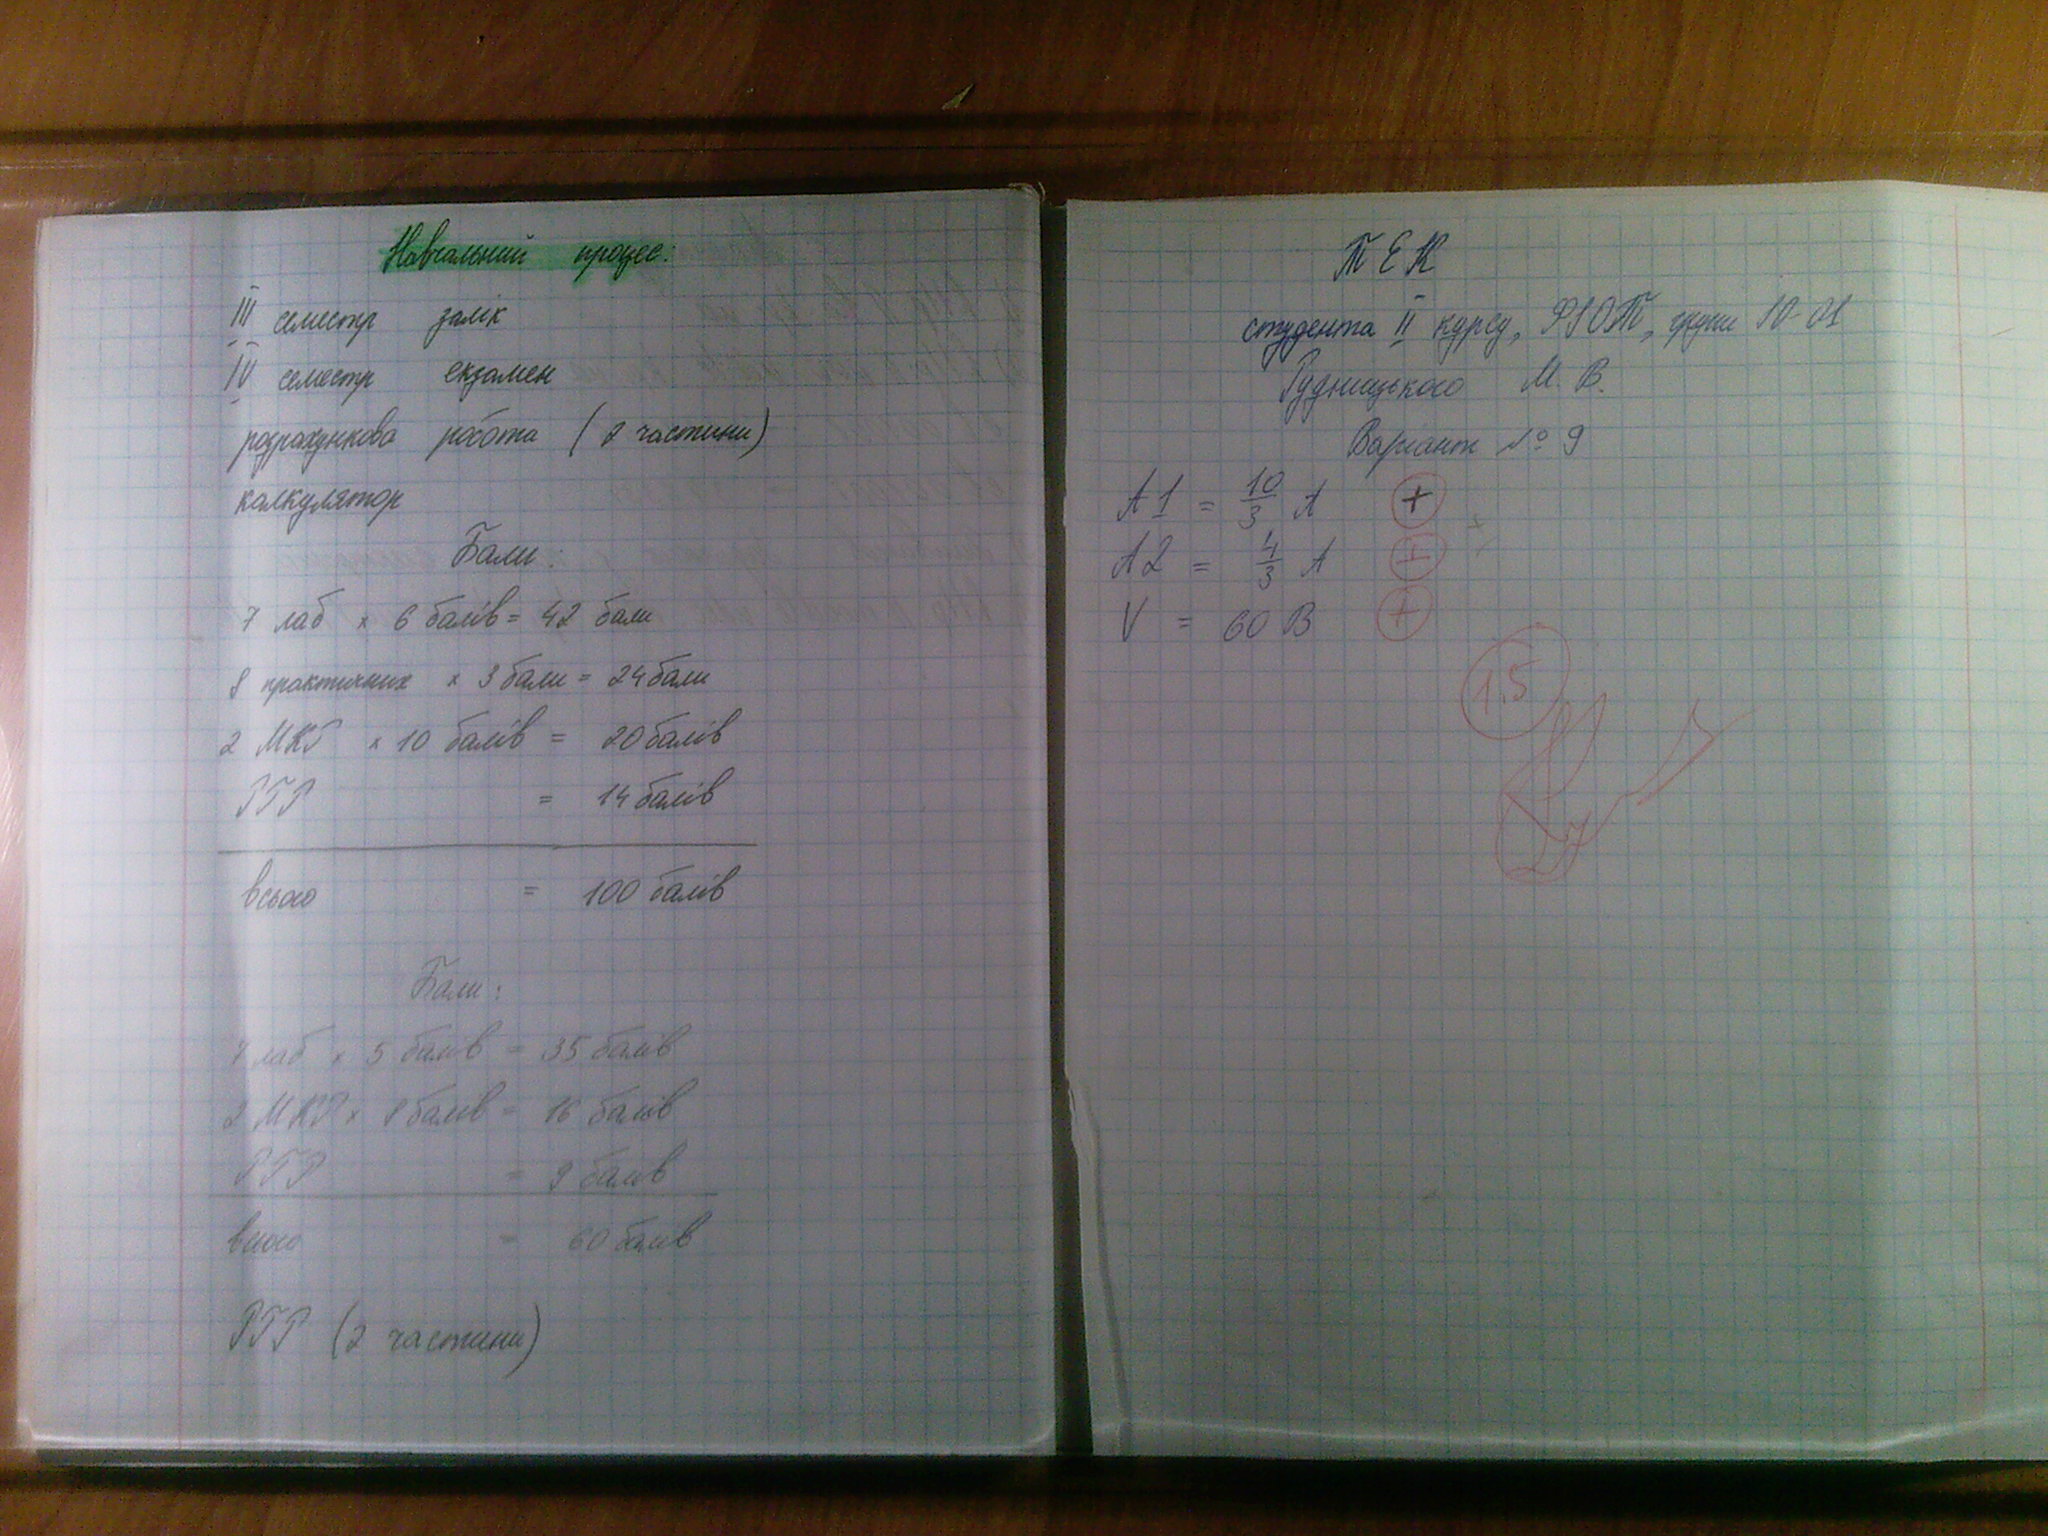 Навчальний процес:
III семестр залік
IV семестр екзамен
розрахункова робота (2 частини)
калкулятор
Бали:
7 лаб × 6 балів = 42 бали
8 практичних × 3 бали = 24 бали
2 МКР × 10 балів = 20 балів
РГР = 14 балів
всього = 100 балів
Бали:
7 лаб × 5 балів = 35 балів
2 МКР × 8 балів = 16 балів
РГР = 9 балів
всього = 60 балів
РГР (2 частини)
ТЕК
студента II курсу, ФІОТ, групи ІО-01
Рудницького М. В.
Варіант № 9
A1 = 10/3 A +
A2 = 4/3 A ±
V = 60 В +
1.5